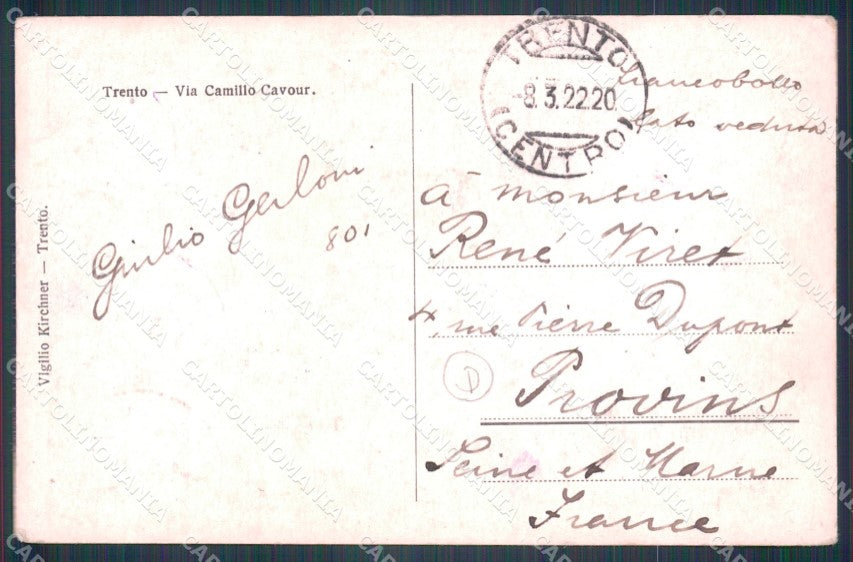 Trento — Via Camillo Cavour.
Vigilio Kirchner — Trento.
Giulio Gerloni
801
TRENTO
8.3.22.20
(CENTRO)
francobollo
lato veduta
à monsieur
René Viret
4 rue Pierre Dupont
D
Provins
Seine et Marne
France
CARTOLINOMANIA